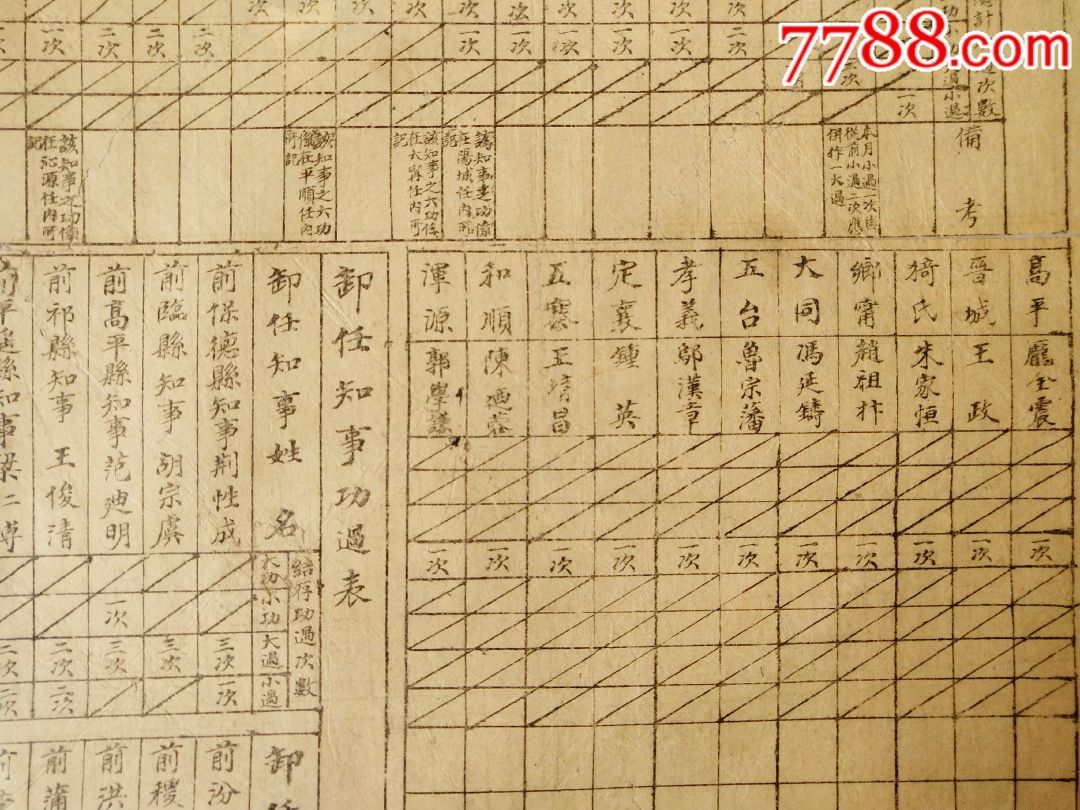 7788.com
次數
大過小過
備考
一次
本月小過一次與
從前小過二次應
併作一大過
二次
一次
一次
一次
一次
一次
該知事之功係
在陽城任內所
記
該知事之大功係
在大寧任內所
記
該知事之大功
係在平順任內
所記
二次
二次
二次
一次
該知事之功係
在沁源任內所
記
高平 龐全震 一次
晉城 王政 一次
猗氏 朱家恒 一次
鄉甯 趙祖抃 一次
大同 馮延鑄 一次
五台 魯宗藩 一次
孝義 鄔漢章 一次
定襄 鍾英 一次
五寨 王培昌 一次
和順 陳 一次
渾源 郭學謙 一次
卸任知事功過表
卸任知事姓名
結存功過次數
大功小功大過小過
前保德縣知事荆性成 三次 一次
前臨縣知事胡宗虞 三次
前高平縣知事范廸明 一次 三次
前祁縣知事王俊清 二次 二次
前平遙縣知事梁仁博 二次 二次
卸任
前汾
前稷
前洪
前蒲
前